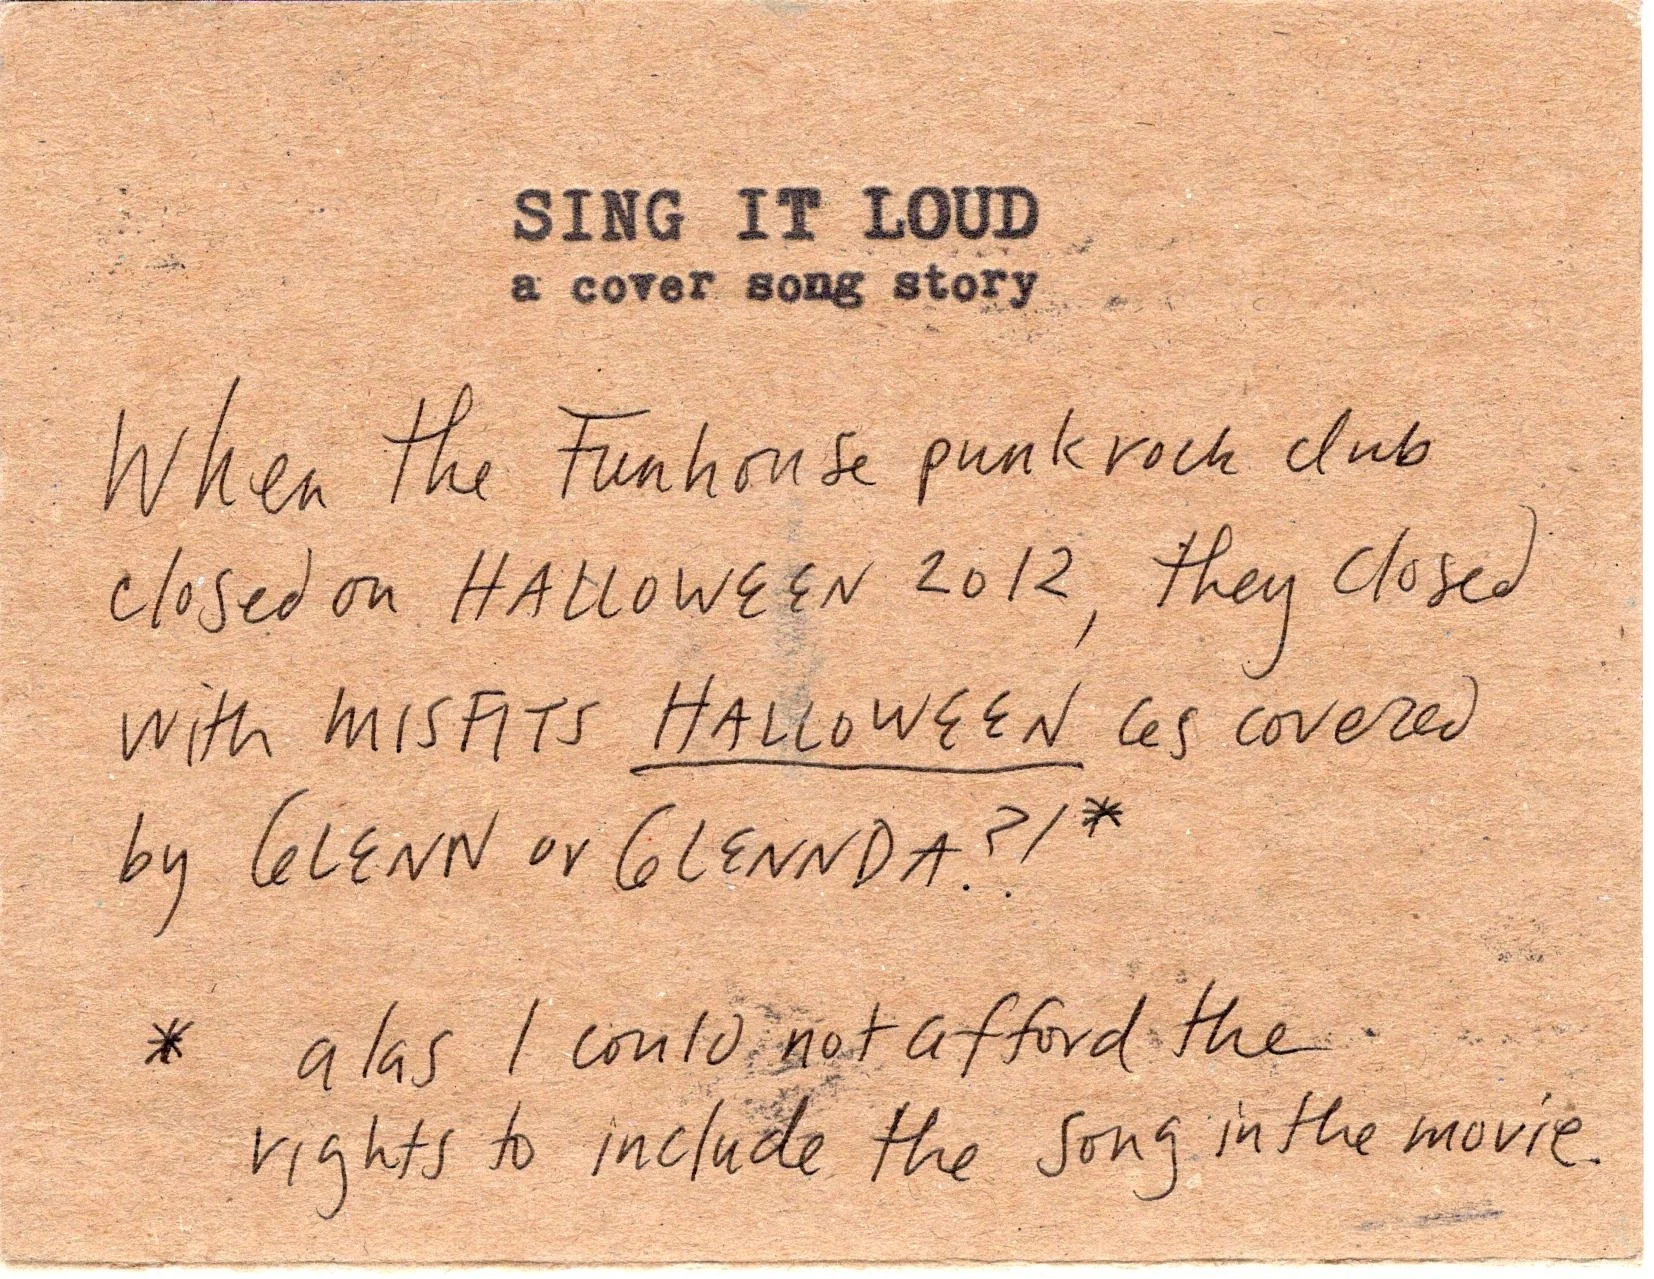 SING IT LOUD
a cover song story
When the Funhouse punk rock club
closed on HALLOWEEN 2012, they closed
with MISFITS HALLOWEEN as covered
by GLENN or GLENNDA?!*
* alas I could not afford the
rights to include the song in the movie.